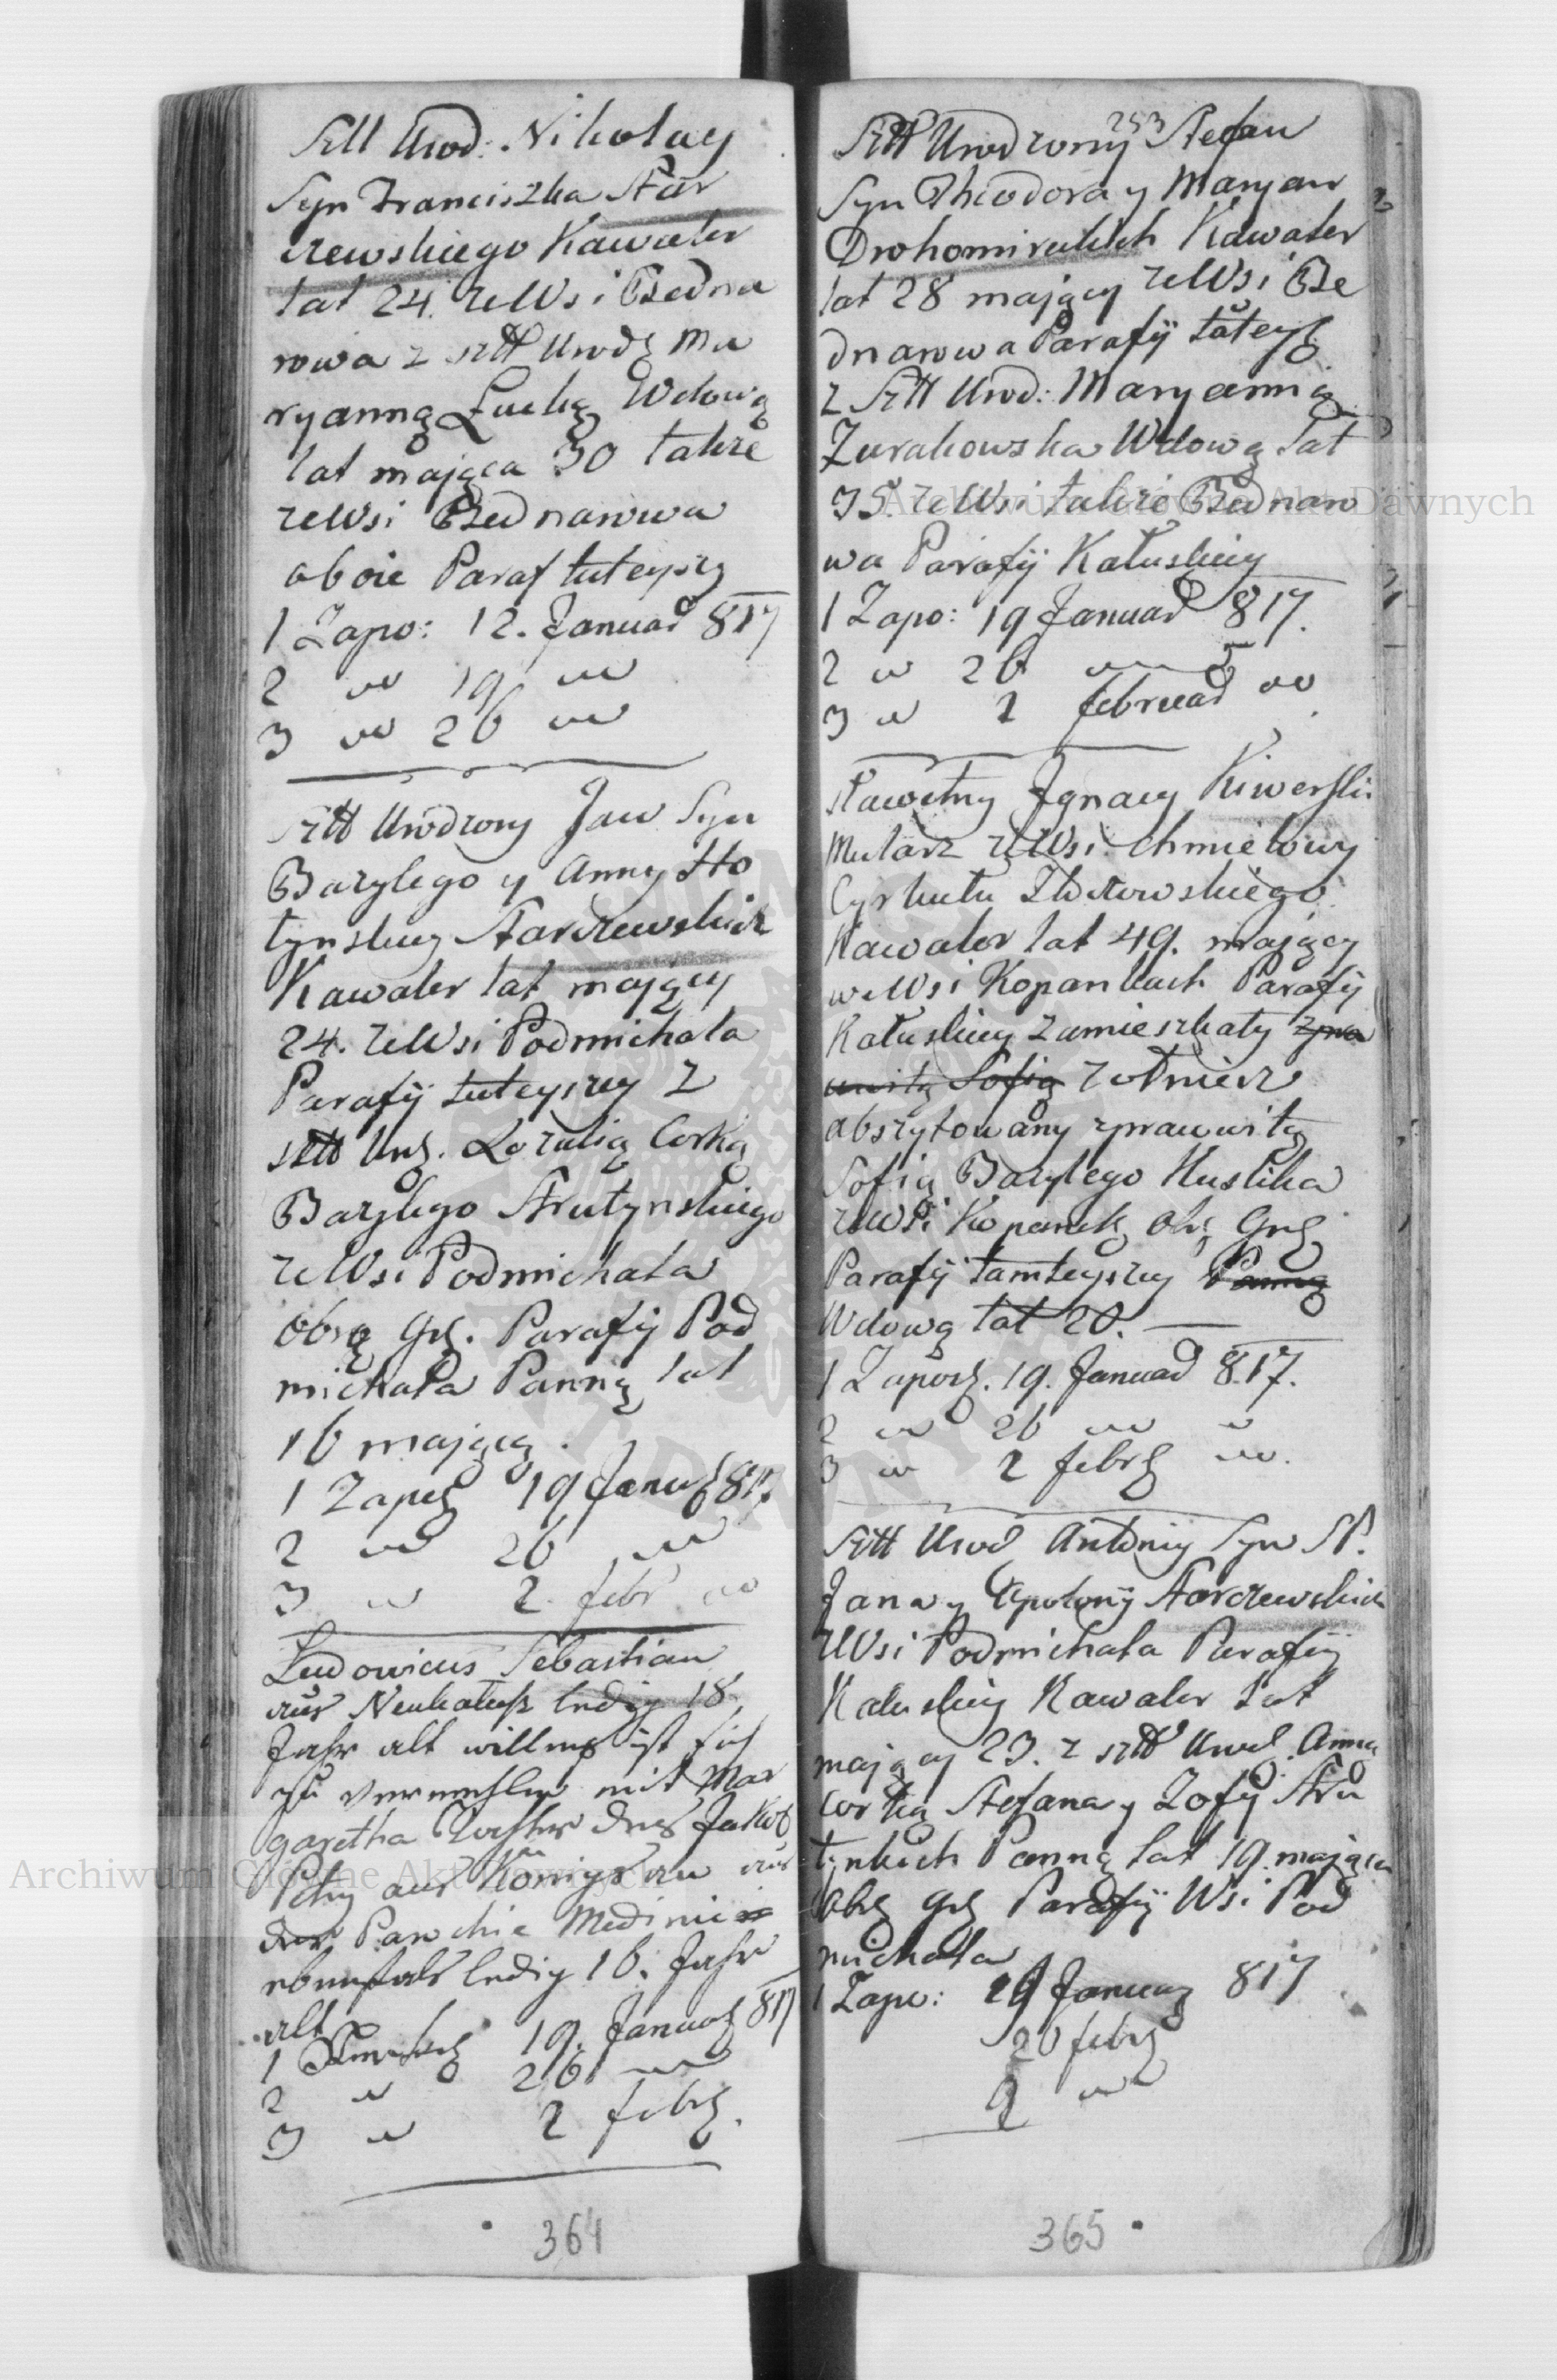 Szl Urod: Nikolay
Syn Franciszka Star
czewskiego Kawaler
lat 24. ze Wsi Bedna
rowa z szl Urodz Ma
ryanną Lucką Wdową
lat mająca 30 także
ze Wsi Bednarowa
oboie Paraf tuteyszy
1 Zapo: 12. Januar 817
2 " 19 "
3 " 26 "
szl Urodzony Jan Syn
Bazylego y Anny Ho
tynskiey Starczewskich
Kawaler lat maiący
24. ze Wsi Podmichala
Parafij tuteyszey z
szl Urz. Rozalią Corką
Bazylego Strutynskiego
ze Wsi Podmichala
Obrzą Grz. Parafij Pod
michala Panną lat
16 mającą.
1 Zapo 19 Janua 817
2 " 26 "
3 " 2. febr "
Ludovicus Sebastian
aus Neukalusz ledig 18
Jahr alt willens ist sich
zu verenehlen mit Mar
garetha Tochter des Jakob
aus Königsau aus
der Parochie Medinice
ebenfals ledig 16. Jahr
alt
1 19. Januar 817
2 " 26 "
3 " 2 febr.
364
253
Szl Urodzony Stefan
Syn Theodora y Maryan
Drohomireckich Kawaler
lat 28 mający ze Wsi Be
dnarowa Parafij tuteysz
z Szl Urod: Maryanną
Zurakowska Wdową lat
35. ze Wsi także Bednaro
wa Parafij Kałuskiey
1 Zapo: 19 Januar 817.
2 " 26 "
3 " 2 februar "
sławetny Jgnacy Kiwerski
Mularz ze Wsi Chmielowy
Cyrkułu Złoczowskiego
Kawaler lat 49. mający
we Wsi Kopankach Parafij
Kałuskiey zamieszkały zpra
witą Sofią żołnierz
abszytowany zprawitą
Sofią Bazylego Huslika
ze Wsi Kopanek Obrz Grz
Parafij tamteyszey Panną
Wdową lat 20.
1 Zapow. 19. Januar 817.
2 " 26 " "
3 " 2 febr "
Szl Urod Antoniy Syn SP.
Jana y Apolonij Starczewskich
ze Wsi Podmichala Parafij
Kałuskiey Kawaler lat
mający 23. z szl Urod. Anną
Corką Stefana y Zofij Stru
tynkich Panną lat 19. mającą
Obrz grz Parafij Wsi Pod
michala
1 Zapo: 19 Januar 817
26 febr
2 "
365
Archiwum Główne Akt Dawnych
Archiwum Główne Akt Dawnych